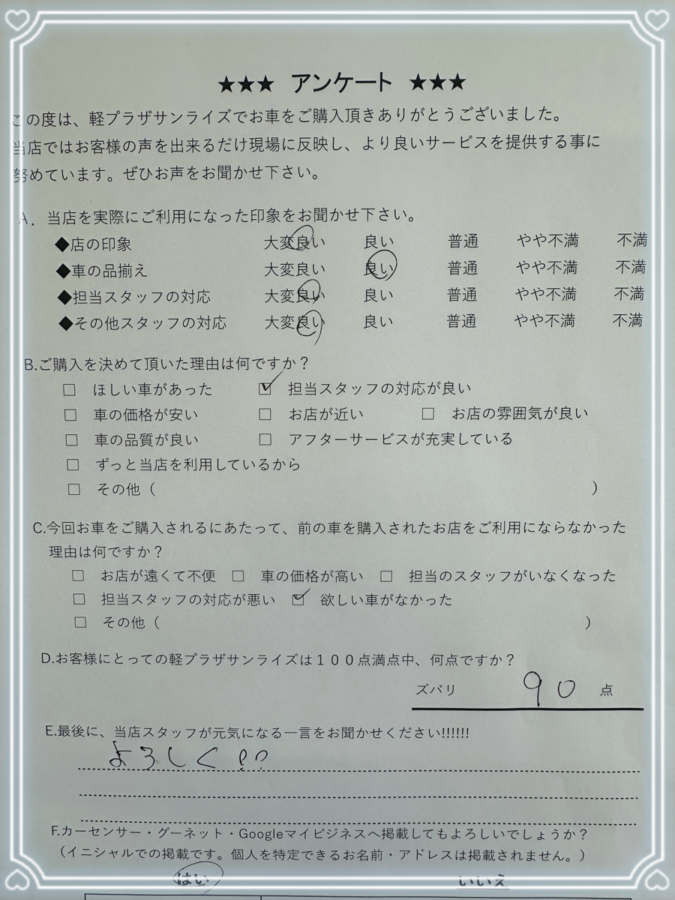 ★★★ アンケート ★★★
この度は、軽プラザサンライズでお車をご購入頂きありがとうございました。
当店ではお客様の声を出来るだけ現場に反映し、より良いサービスを提供する事に
努めています。ぜひお声をお聞かせ下さい。
A. 当店を実際にご利用になった印象をお聞かせ下さい。
◆店の印象 大変良い 良い 普通 やや不満 不満
◆車の品揃え 大変良い 良い 普通 やや不満 不満
◆担当スタッフの対応 大変良い 良い 普通 やや不満 不満
◆その他スタッフの対応 大変良い 良い 普通 やや不満 不満
B.ご購入を決めて頂いた理由は何ですか?
□ ほしい車があった ☑ 担当スタッフの対応が良い
□ 車の価格が安い □ お店が近い □ お店の雰囲気が良い
□ 車の品質が良い □ アフターサービスが充実している
□ ずっと当店を利用しているから
□ その他( )
C.今回お車をご購入されるにあたって、前の車を購入されたお店をご利用にならなかった
理由は何ですか?
□ お店が遠くて不便 □ 車の価格が高い □ 担当のスタッフがいなくなった
□ 担当スタッフの対応が悪い ☑ 欲しい車がなかった
□ その他( )
D.お客様にとっての軽プラザサンライズは100点満点中、何点ですか?
ズバリ 90 点
E.最後に、当店スタッフが元気になる一言をお聞かせください!!!!!!
よろしく!!
F.カーセンサー・グーネット・Googleマイビジネスへ掲載してもよろしいでしょうか?
(イニシャルでの掲載です。個人を特定できるお名前・アドレスは掲載されません。)
はい いいえ